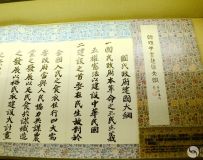 國民政府建國大綱
一國民政府本革命之三民主義
五權憲法以建設中華民國
二建設之首要在民生故對於
全國人民之食衣住行四大需
要政府當與人民協力共謀農
業之發展以足民食共謀織造
之發展以裕民衣建築大計畫